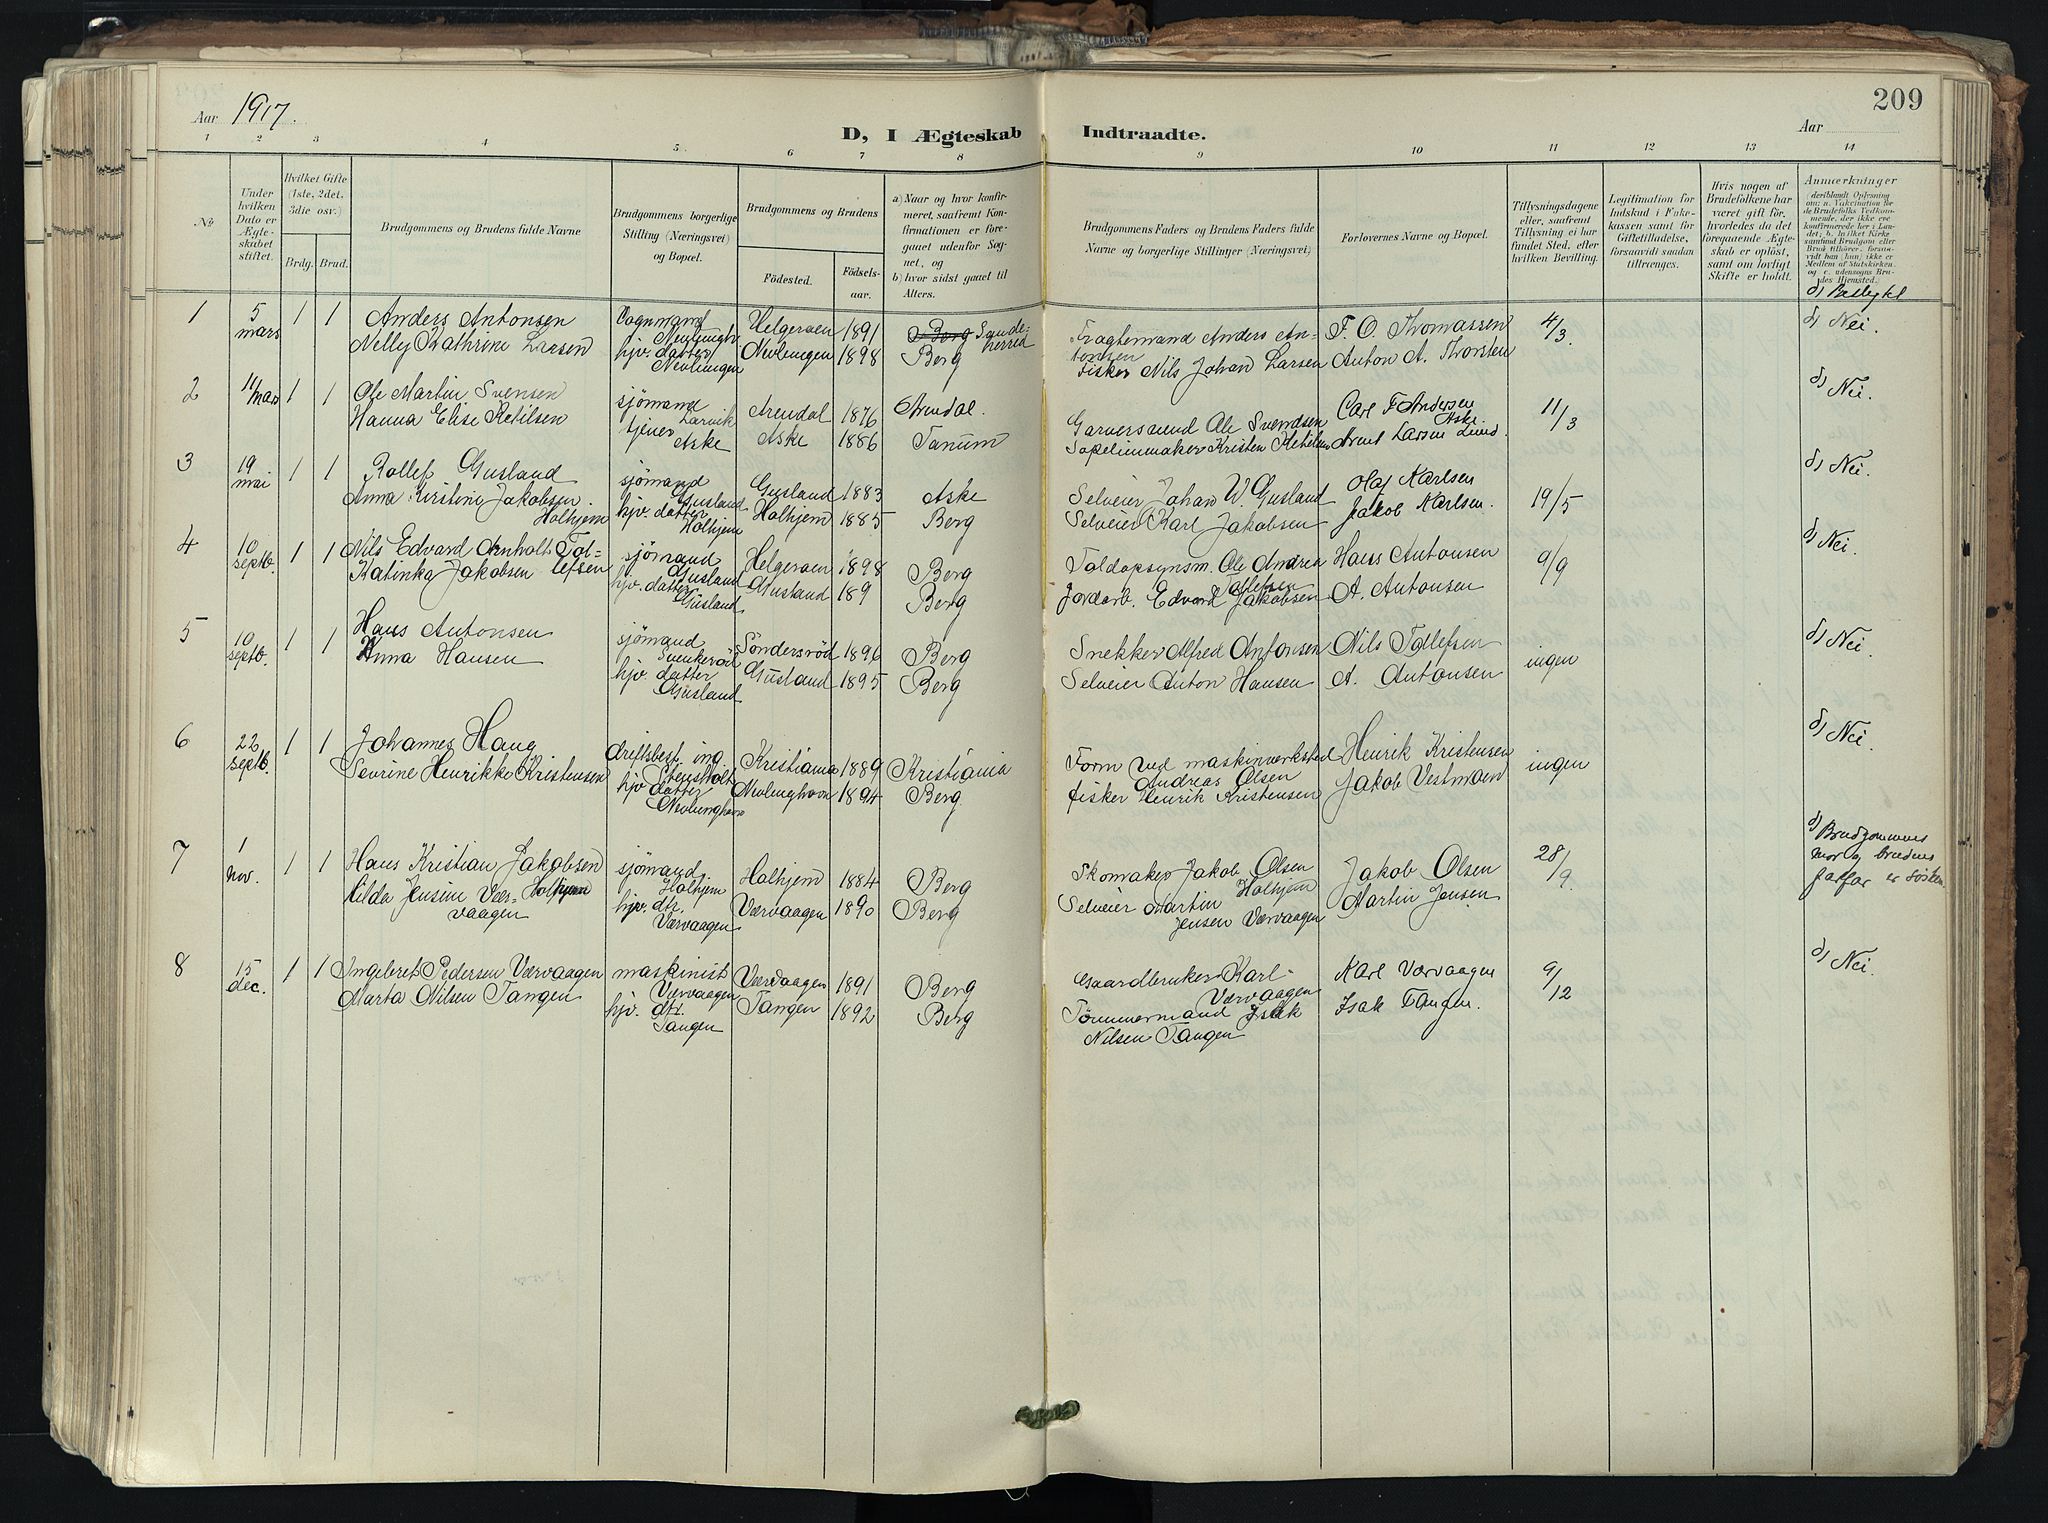 209
Aar 1917.
D, I Ægteskab Indtraadte.
Aar
1 2 3 4 5 6 7 8 9 10 11 12 13 14
No
Under hvilken Dato er Ægteskabet stiftet.
Hvilket Gifte (1ste, 2det, 3die osv.)
Brdg. Brud.
Brudgommens og Brudens fulde Navne
Brudgommens borgerlige Stilling (Næringsvei) og Bopæl.
Brudgommens og Brudens
Fødested.
Fødselsaar.
a) Naar og hvor konfirmeret, saafremt Konfirmationen er foregaaet udenfor Sognet, og
b) hvor sidst gaaet til Alters.
Brudgommens Faders og Brudens Faders fulde Navne og borgerlige Stillinger (Næringsvei)
Forlovernes Navne og Bopæl.
Tillysningsdagene eller, saafremt Tillysning ei har fundet Sted, efter hvilken Bevilling.
Legitimation for Indskud i Enkekassen samt for Giftetilladelse, forsaavidt saadan tiltrænges.
Hvis nogen af Brudefolkene har været gift før, hvorledes da det foregaaende Ægteskab er opløst, samt om lovligt Skifte er holdt.
Anmærkninger
deriblandt Oplysning om: a. Vakcination for de Brudefolks Vedkommende, der ikke ere konfirmerede her i Landet; b. hvilket Kirkesamfund Brudgom eller Brud tilhører, forsaavidt han (hun) ikke er Medlem af Statskirken, og c. udensogns Brudes Hjemsted.
d) Beslegtet
1 5 mars 1 1 Anders Antonsen Vognmand Nevlungh. Helgeraen 1891 Berg Sandeherred Fragtemand Anders Antonsen F. O. Thomassen 4/3. d) Nei.
Nelly Kathrine Larsen hjv. datter Nevlungen Nevlungen 1898 Berg Fisker Nils Johan Larsen Anton A. Thorsten
2 11 mars 1 1 Ole Martin Svensen sjömand Larvik Arendal 1876 Arendal. Garversvend Ole Svendsen Carl F Andersen Aske 11/3 d) Nei.
Hanna Elise Ketilsen tjener Aske Aske 1886 Tanum Kristen Ketilsen Arnt Larsen Lund.
3 19 mai 1 1 Rollef Gusland sjömand Gusland Gusland 1883 Aske Selveier Johan W. Gusland Olaf Karlsen 19/5 d) Nei.
Anna Kirstine Jakobsen Holhjem hjv. datter Holhjem Holhjem 1885 Berg Selveier Karl Jakobsen Jakob Karlsen.
4 10 septb. 1 1 Nils Edvard Arnholt Tollefsen sjömand Gusland Helgeraen 1898 Berg Toldopsynsm. Ole Andrea Tollefsen Hans Antonsen 9/9 d) Nei.
Katinka Jakobsen hjv. datter Gusland Gusland 189 Berg Jordarb. Edvard Jakobsen A. Antonsen
5 10 septb. 1 1 Hans Antonsen sjömand Söndersröd 1896 Berg Snekker Alfred Antonsen Nils Tollefsen ingen d) Nei.
Anna Hansen hjv. datter Gusland Gusland 1895 Berg Selveier Anton Hansen A. Antonsen
6 22 septb. 1 1 Johannes Haug driftsbest. ing. Kristiania 1889 Kristiania Form ved maskinverksted Andreas Olsen Henrik Kristensen ingen d) Nei.
Sevrine Henrikke Kristensen hjv datter Nevlunghavn Nevlunghavn 1894 Berg. fisker Henrik Kristensen Jakob Vestmaen
7 1 nov. 1 1 Hans Kristian Jakobsen Holhjem sjömand. Holhjem Holhjem 1884 Berg Skomaker Jakob Olsen Holhjem Jakob Olsen 28/9. d) Brudgommens mor og brudens farfar er søsken
Hilda Jensine Værvaagen hjv. dtr. Værvaagen Værvaagen 1890 Berg Selveier Martin Jensen Værvaagen Martin Jensen
8 15 dec. 1 1 Ingebret Pedersen Værvaagen maskinist Værvaagen Værvaagen 1891 Berg Gaardbruker Karl Værvaagen Karl Værvaagen 9/12 d) Nei.
Marta Nilsen Tangen hjv. dtr. Tangen Tangen 1892 Berg Tömmermand Isak Nilsen Tangen Isak Tangen.